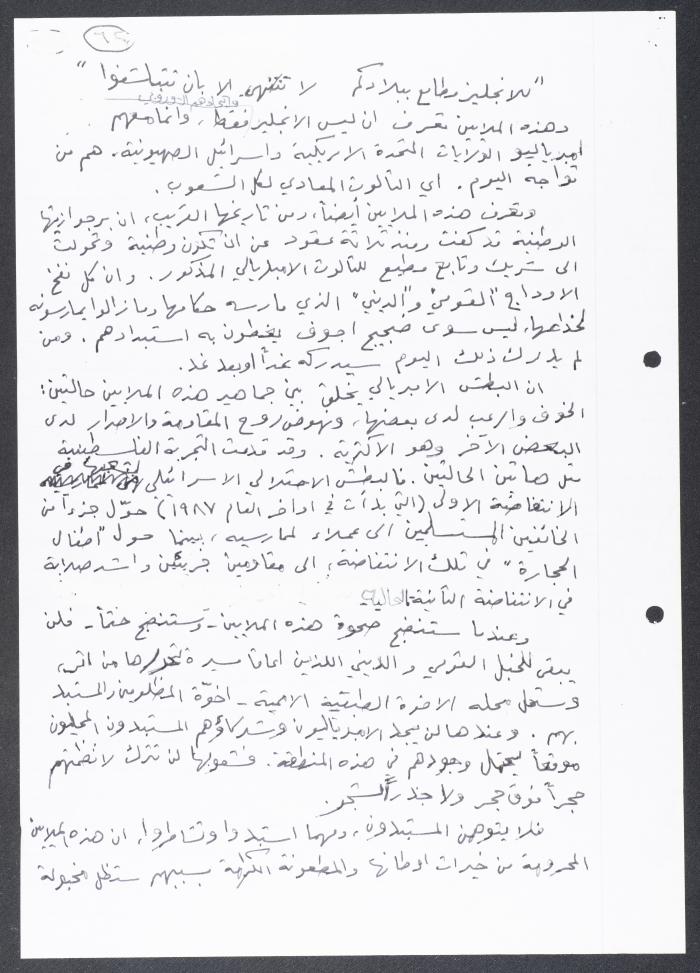 ٦٢
"للانجليز مطامع ببلادكم لا تنتهي الا بان تتبلشفوا"
وهذه الملايين تعرف ان ليس الانجليز فقط، وانما معهم
امبرياليو الولايات المتحدة الامريكية واسرائيل الصهيونية. هم من
تواجه اليوم. اي الثالوث المعادي لكل الشعوب.
وتعرف هذه الملايين أيضاً، ومن تاريخها القريب، ان برجوازيتها
الوطنية قد كفت ومنذ ثلاثة عقود عن ان تكون وطنية وتحولت
الى شريك وتابع مطيع للثالوث الامبريالي المذكور. وان كل نفخ
الاوداج "القومي" و"الديني" الذي مارسه حكامها وما زالوا يمارسونه
لخداعها، ليس سوى ضجيج اجوف يغطون به استبدادهم. ومن
لم يدرك ذلك اليوم سيدركه غداً او بعد غد.
ان البطش الامبريالي يخلق بين جماهير هذه الملايين حالتين:
الخوف والرعب لدى بعضها، ونهوض روح المقاومة والاصرار لدى
البعض الآخر وهو الاكثرية. وقد قدمت التجربة الفلسطينية
مثل هاتين الحالتين. فالبطش الاحتلالي الاسرائيلي لشعبها في
الانتفاضة الاولى (التي بدأت في اواخر العام ١٩٨٧) حوّل جزءاً من
الخائفين المستسلمين الى عملاء لممارسيه، بينما حول "اطفال
الحجارة" في تلك الانتفاضة، الى مقاومين جريئين واشد صلابة
في الانتفاضة الثانية الحالية.
وعندما ستنضج صحوة هذه الملايين - وستنضج حتماً - فلن
يبقى للخبل القومي والديني اللذين اعاقا مسيرة تحررها من اثر،
وستحل محله الاخوة الطبقية الاممية - اخوّة المظلومين والمستبد
بهم. وعندها لن يجد الامبرياليون وشركاؤهم المستبدون المحليون
موقعاً يحتمل وجودهم في هذه المنطقة. فشعوبها لن تترك لانظمتهم
حجراً فوق حجر ولا جذراً لشجر.
فلا يتوهمن المستبدون، ومهما استبدوا وتشاطروا، ان هذه الملايين
المحرومة من خيرات اوطانها والمطعونة الكرامة بسببهم ستظل مخبولة